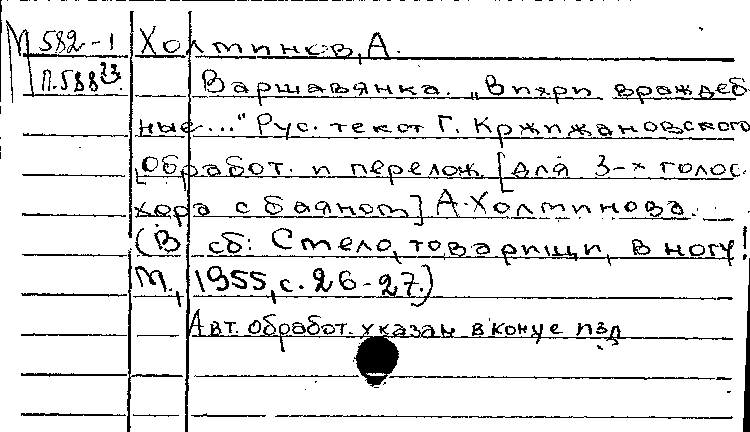 М 582-1 Холминов, А.
П.588²³ Варшавянка. „Вихри враждеб
ные..." Рус. текст Г. Кржижановского
Обработ. и перелож. [для 3-х голос.
хора с баяном] А. Холминова.
(В сб: Смело, товарищи, в ногу!
М., 1955, с. 26-27.)
Авт. обработ. указан в конце изд